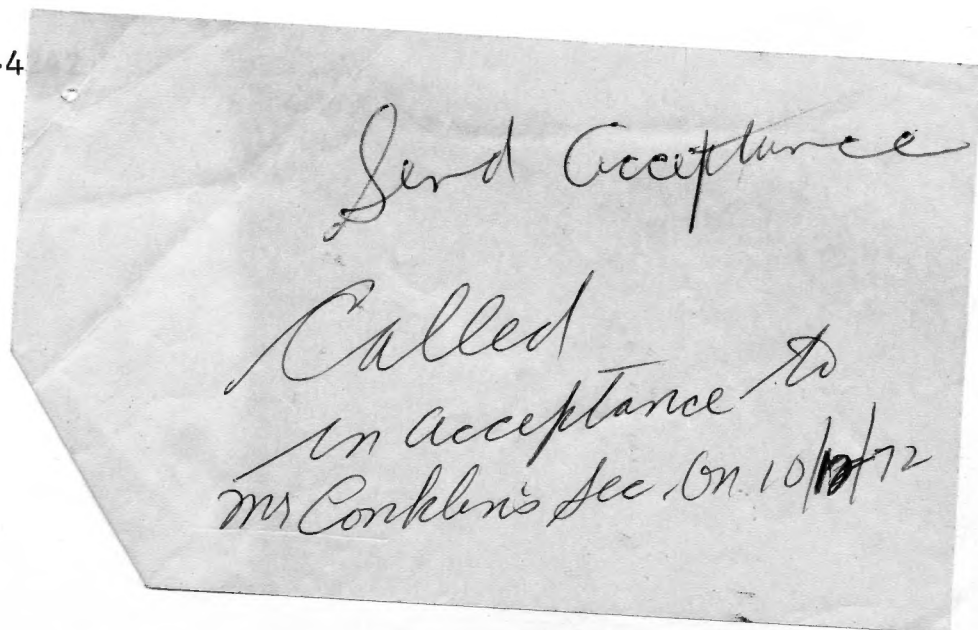 .4
Send Acceptance
Called
in acceptance to
Mr Conklin's Sec. On 10/12/72